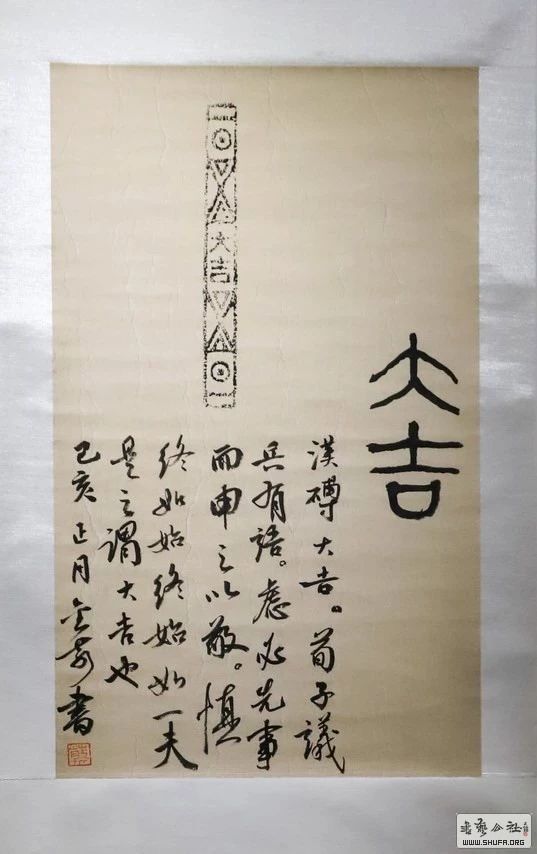 大吉
大吉
漢磚大吉。荀子議
兵有語。慮必先事
而申之以敬。慎
終如始終始如一夫
是之謂大吉也
己亥正月書
書藝公社
WWW.SHUFA.ORG